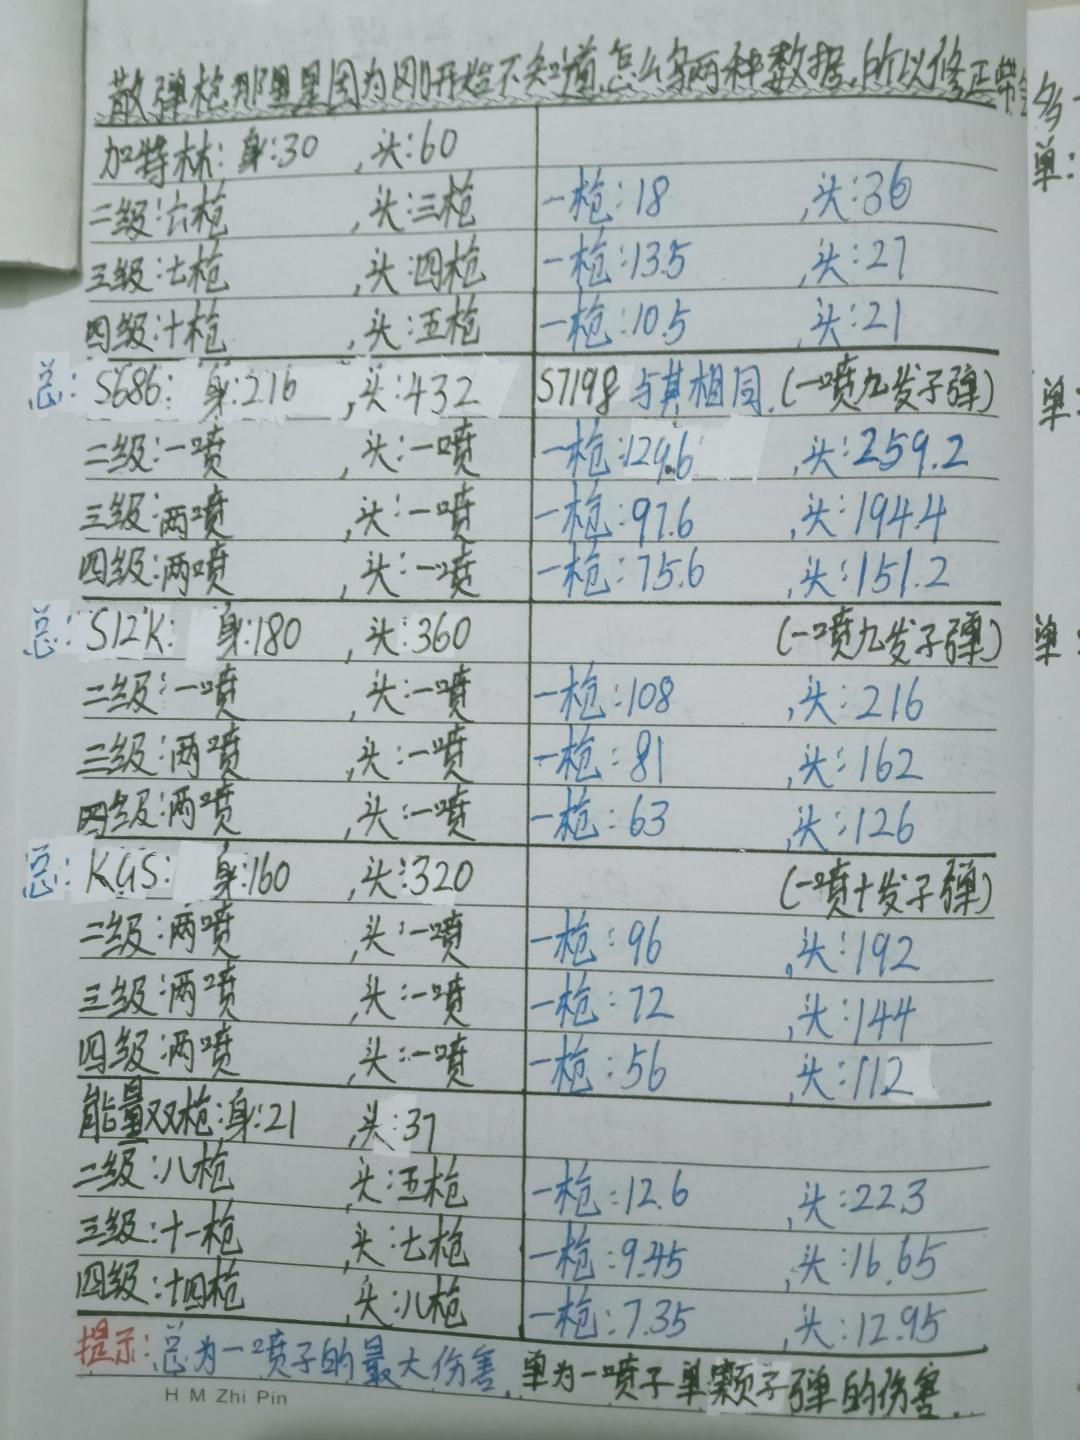 散弹枪那里是因为刚开始不知道怎么写两种数据.所以修正带多
加特林: 身:30 ,头:60
二级:六枪 ,头:三枪 一枪:18 ,头:36
三级:七枪 ,头:四枪 一枪:13.5 ,头:27
四级:十枪 ,头:五枪 一枪:10.5 ,头:21
总: S686: 身:216 ,头:432 S1198与其相同.(一喷九发子弹)
二级:一喷 ,头:一喷 一枪:129.6 ,头:259.2
三级:两喷 ,头:一喷 一枪:97.6 ,头:194.4
四级:两喷 ,头:一喷 一枪:75.6 ,头:151.2
总: S12K: 身:180 ,头:360 (一喷九发子弹)
二级:一喷 ,头:一喷 一枪:108 ,头:216
三级:两喷 ,头:一喷 一枪:81 ,头:162
四级:两喷 ,头:一喷 一枪:63 ,头:126
总: KGS: 身:160 ,头:320 (一喷十发子弹)
二级:两喷 ,头:一喷 一枪:96 ,头:192
三级:两喷 ,头:一喷 一枪:72 ,头:144
四级:两喷 ,头:一喷 一枪:56 ,头:112
能量双枪:身:21 ,头:37
二级:八枪 头:五枪 一枪:12.6 ,头:22.3
三级:十一枪 头:七枪 一枪:9.45 ,头:16.65
四级:十四枪 ,头:八枪 一枪:7.35 ,头:12.95
提示:总为一喷子的最大伤害,单为一喷子单颗子弹的伤害.
H M Zhi Pin
单:
单:
单: